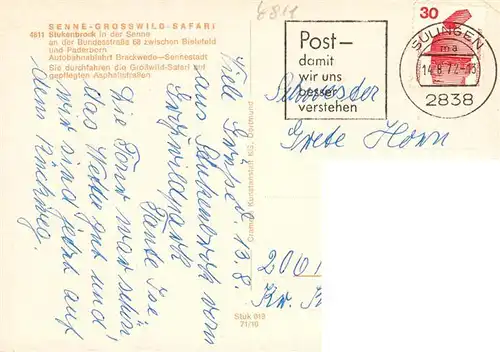 6811
SENNE-GROSSWILD-SAFARI
4811 Stukenbrock in der Senne
an der Bundesstraße 68 zwischen Bielefeld
und Paderborn
Autobahnabfahrt Brackwede—Sennestadt
Sie durchfahren die Großwild-Safari auf
gepflegten Asphaltstraßen
Viele Grüße d. 13.8.
aus Stukenbrock vom
Großwildpark
Tante Ise
Die Tour war schön
das Wetter gut und
wir sind jetzt auf
dem Rückweg.
Cramers Kunstanstalt KG, Dortmund
Stuk 919
71/10
Post—
damit
wir uns
besser
verstehen
SULINGEN
ma
14.8.72-13
2838
30
Schwester
Grete Horn
2061
Kr.